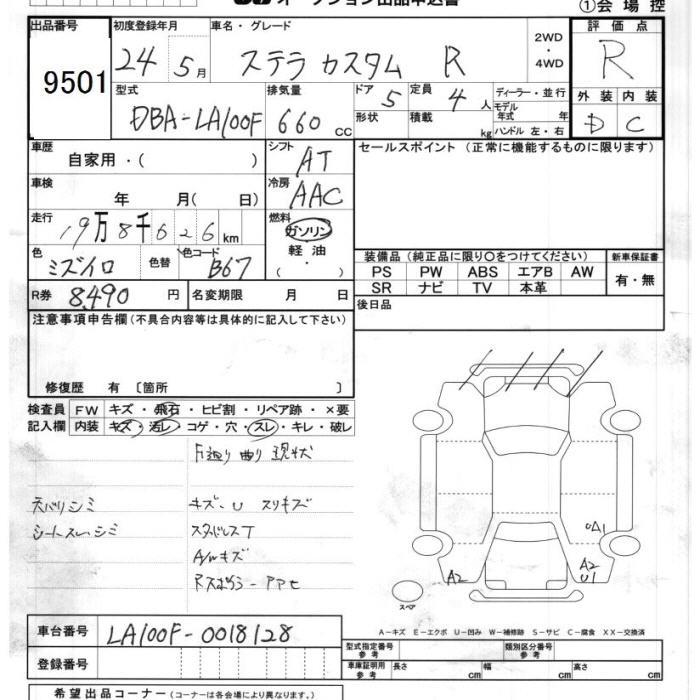 オークション出品申込書
①会場控
出品番号
9501
初度登録年月
24 5月
車名・グレード
ステラ カスタム R
2WD
・
4WD
評価点
R
型式
DBA-LA100F
排気量
660 cc
ドア
5
形状
定員
4人
積載
kg
ディーラー・並行
モデル
年式 年
ハンドル 左・右
外装 内装
D C
車歴
自家用・( )
シフト
AT
セールスポイント (正常に機能するものに限ります)
車検
年 月( 日)
冷房
AAC
走行
19万8千626km
燃料
ガソリン
軽油
・
( )
色
ミズイロ
色替
色コード
B67
装備品 (純正品に限り○をつけてください)
新車保証書
PS PW ABS エアB AW
SR ナビ TV 本革
有・無
R券 8490 円
名変期限 月 日
後日品
注意事項申告欄(不具合内容等は具体的に記入して下さい)
修復歴 有 〔箇所 〕
検査員
記入欄
FW キズ・飛石・ヒビ割・リペア跡・×要
内装 キズ・汚レ・コゲ・穴・スレ・キレ・破レ
天バリシミ
シートスレ・シミ
曲り 現状
キズ・U スリキズ
スタッドレスT
A/Wキズ
A1
A2
A2
U1
スペア
A-キズ E-エクボ U-凹み W-補修跡 S-サビ C-腐食 XX-交換済
車台番号
LA100F-0018128
登録番号
型式指定番号
参考
類別区分番号
参考
車庫証明用
参考
長さ cm
幅 cm
高さ cm
希望出品コーナー(コーナーは各会場により異なります。)